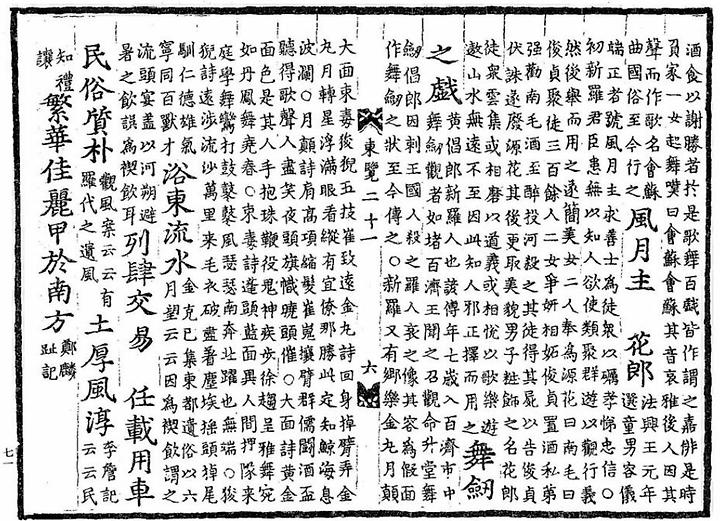 酒食以謝勝者於是歌舞百戲皆作謂之嘉俳是時
負家一女起舞嘆曰會蘇會蘇其音哀雅後人因其
聲而作歌名會蘇
曲國俗至今行之
風月主 花郎
法興王元年
選童男容儀
端正者號風月主求善士為徒衆以礪孝悌忠信○
初新羅君臣患無以知人欲使類聚群遊以觀行義
然後舉而用之遂簡美女二人奉為源花曰南毛曰
俊貞聚徒三百餘人二女爭妍相妬俊貞置酒私第
强勸南毛酒至醉投河殺之其徒得其屍以告俊貞
伏誅遂廢源花其後更取美貌男子粧飾之名花郎
徒衆雲集或相磨以道義或相悅以歌樂遊
遨山水無遠不至因此知人邪正擇而用之
舞劒
之戲
黃倡郎新羅人也諺傳年七歲入百濟市中
舞劒觀者如堵百濟王聞之召觀命升堂舞
劒倡郎因刺王國人殺之羅人哀之像其容為假面
作舞劒之狀至今傳之○新羅又有鄉樂金丸月顚
東覽二十一 六
大面束毒俊猊五技崔致遠金丸詩回身掉臂弄金
丸月轉星浮滿眼看縱有宜僚那勝此定知鯨海息
波瀾○月顚詩肩高項縮髮崔嵬攘臂群儒鬪酒盃
聽得歌聲人盡笑夜頭旗幟曉頭催○大面詩黃金
面色是其人手抱珠鞭役鬼神疾步徐趨呈雅舞宛
如丹鳳舞堯春○束毒詩蓬頭藍面異人間押隊來
庭學舞鸞打鼓鼕鼕風瑟瑟南奔北躍也無端○俊
猊詩遠涉流沙萬里來毛衣破盡着塵埃搖頭掉尾
馴仁德雄氣
寧同百獸才
浴東流水
金克己集東都遺俗以六
月望云云因為禊飲謂之
流頭宴盖以河朔避
暑之飲誤為禊飲耳
列肆交易 任載用車
民俗質朴
觀風案云云有
羅代之遺風
土厚風淳
李詹記
云云民
知禮
讓
繁華佳麗甲於南方
鄭麟
趾記
七一